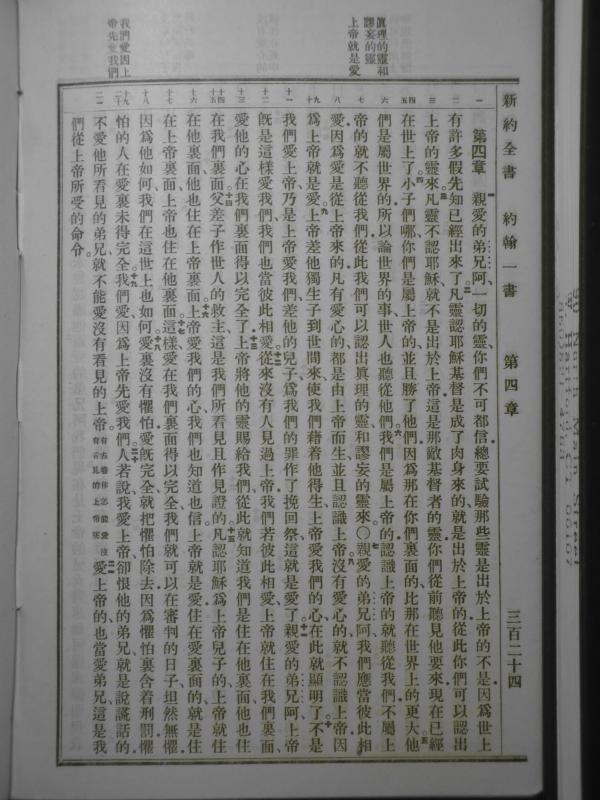 新約全書 約翰一書 第四章 三百二十四
眞理的靈和
謬妄的靈
上帝就是愛
我們愛因上
帝先愛我們
第四章 親愛的弟兄阿、一切的靈、你們不可都信、總要試驗那些靈是出於上帝的不是、因爲世上
有許多假先知已經出來了凡靈認耶穌基督是成了肉身來的就是出於上帝的從此你們可以認出
上帝的靈來凡靈不認耶穌就不是出於上帝這是那敵基督者的靈你們從前聽見他要來現在已經
在世上了小子們哪你們是屬上帝的並且勝了他們因爲那在你們裏面的比那在世界上的更大他
們是屬世界的所以論世界的事世人也聽從他們我們是屬上帝的認識上帝的就聽從我們不屬上
帝的就不聽從我們從此我們可以認出眞理的靈和謬妄的靈來○親愛的弟兄阿我們應當彼此相
愛因爲愛是從上帝來的凡有愛心的都是由上帝而生並且認識上帝沒有愛心的就不認識上帝因
爲上帝就是愛上帝差他獨生子到世間來使我們藉着他得生上帝愛我們的心在此就顯明了不是
我們愛上帝乃是上帝愛我們差他的兒子爲我們的罪作了挽回祭這就是愛了親愛的弟兄阿上帝
旣是這樣愛我們我們也當彼此相愛從來沒有人見過上帝我們若彼此相愛上帝就住在我們裏面
愛他的心在我們裏面得以完全了上帝將他的靈賜給我們從此就知道我們是住在他裏面他也住
在我們裏面父差子作世人的救主這是我們所看見且作見證的凡認耶穌爲上帝兒子的上帝就住
在他裏面他也住在上帝裏面上帝愛我們的心我們也知道也信上帝就是愛住在愛裏面的就是住
在上帝裏面上帝也住在他裏面這樣愛在我們裏面得以完全我們就可以在審判的日子坦然無懼
因爲他如何我們在這世上也如何愛裏沒有懼怕愛旣完全就把懼怕除去因爲懼怕裏含着刑罰懼
怕的人在愛裏未得完全我們愛因爲上帝先愛我們人若說我愛上帝卻恨他的弟兄就是說謊話的
不愛他所看見的弟兄就不能愛沒有看見的上帝有古卷作怎能愛沒有看見的上帝呢愛上帝的也當愛弟兄這是我
們從上帝所受的命令。
90 North Main Street